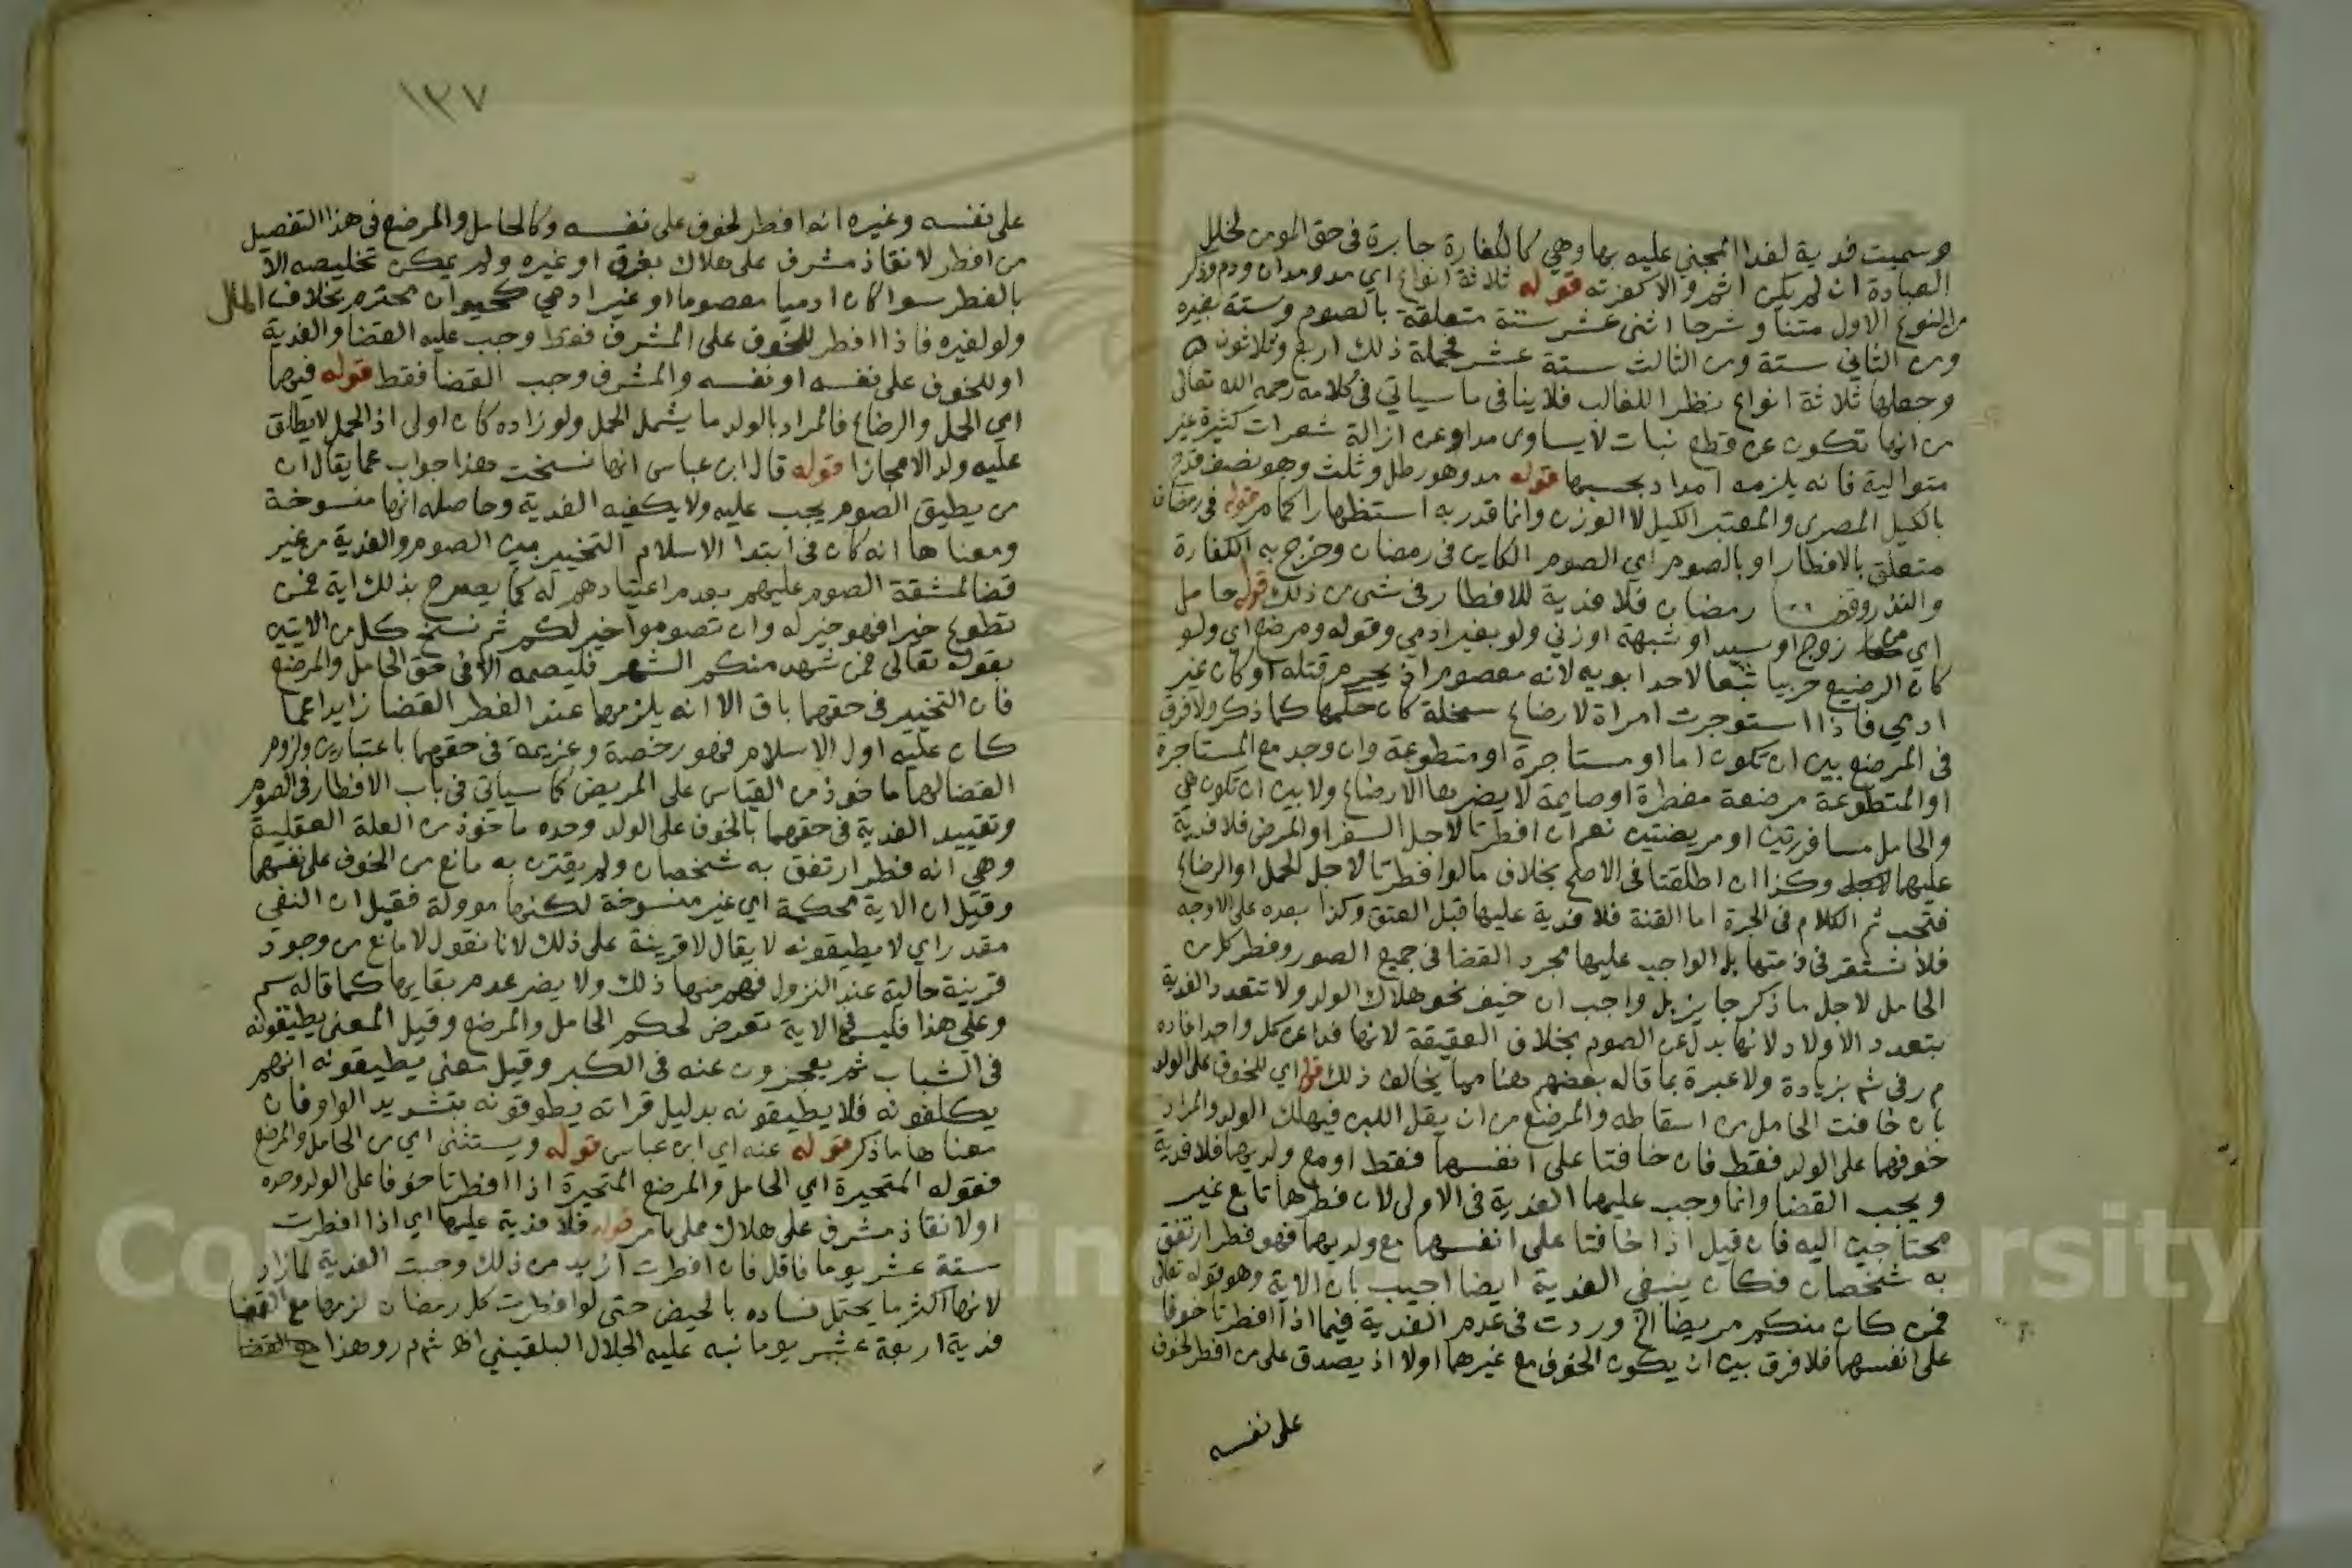 وسميت فدية لفدا المجني عليه بها وهي كالكفارة جابرة في حق المومن لخلل
العبادة ان لم يكن اثم والا كفرته قوله ثلاثة انواع اي مد ومدان ودم وذكر
من النوع الاول متنا وشرحا اثنى عشر ستة متعلقة بالصوم وستة بغيره
ومن الثاني ستة ومن الثالث ستة عشر فجملة ذلك اربع وثلاثون
وجعلها ثلاثة انواع نظرا للغالب فلا ينافي ما سياتي في كلامه رحمه الله تعالى
من انها تكون عن قطع نبات لا يساوى مدا وعن ازالة شعرات كثيرة غير
متوالية فانه يلزمه امداد بحسبها قوله مد وهو رطل وثلث وهو نصف قدح
بالكيل المصرى والمعتبر الكيل لا الوزن وانما قدر به استظهارا كما مر قوله في رمضان
متعلق بالافطار او بالصوم اي الصوم الكاين في رمضان وخرج به الكفارة
والنذر وقضا رمضان فلا فدية للافطار في شي من ذلك قوله حامل
اي من زوج او سيد او شبهة او زنى ولو بغير ادمي وقوله ومرضع اي ولو
كان الرضيع حربيا تبعا لاحد ابويه لانه معصوم اذ يحرم قتله او كان غير
ادمي فاذا استوجرت امراة لارضاع سخلة كان حكمها كما ذكر ولا فرق
في المرضع بين ان تكون اما او مستاجرة او متطوعة وان وجد مع المستاجرة
او المتطوعة مرضعة مفطرة او صايمة لا يضرها الارضاع ولا بين ان تكون هي
والحامل مسافرتين او مريضتين نعم ان افطرتا لاجل السفر او المرض فلا فدية
عليهما وكذا ان اطلقتا في الاصح بخلاف ما لو افطرتا لاجل الحمل او الرضاع
فتجب ثم الكلام في الحرة اما القنة فلا فدية عليها قبل العتق وكذا بعده على الاوجه
فلا تستقر في ذمتها بل الواجب عليها مجرد القضا في جميع الصور وفطر كل من
الحامل لاجل ما ذكر جايز بل واجب ان خيف نحو هلاك الولد ولا تتعدد الفدية
بتعدد الاولاد لانها بدل عن الصوم بخلاف العقيقة لانها فداعن كل واحد افاده
م ر في شم بزيادة ولا عبرة بما قاله بعضهم هنا مما يخالف ذلك قوله اي للخوف على الولد
بان خافت الحامل من اسقاطه والمرضع من ان يقل اللبن فيهلك الولد والمراد
خوفهما على الولد فقط فان خافتا على انفسهما فقط او مع ولديهما فلا فدية
ويجب القضا وانما وجب عليهما الفدية في الاولى لان فطرهما تابع غير
محتاجين اليه فان قيل اذا خافتا على انفسهما مع ولديهما فهو فطر ارتفق
به شخصان فكان ينبغي الفدية ايضا اجيب بان الاية وهو قوله تعالى
فمن كان منكم مريضا الخ وردت في عدم الفدية فيما اذا افطرتا خوفا
على انفسهما فلا فرق بين ان يكون الخوف مع غيرهما اولا اذ يصدق على من افطر لخوف
على نفسه
١٣٧
على نفسه وغيره انه افطر لخوف على نفسه وكالحامل والمرضع في هذا التفصيل
من افطر لانقاذ مشرف على هلاك بغرق او غيره ولم يمكن تخليصه الا
بالفطر سوا كان ادميا معصوما او غير ادمي كحيوان محترم بخلاف المال
ولو لغيره فاذا افطر للخوف على المشرف فقط وجب عليه القضا والفدية
او للخوف على نفسه او نفسه والمشرف وجب القضا فقط قوله فيهما
اي الحمل والرضاع فالمراد بالولد ما يشمل الحمل ولو زاده كان اولى اذ الحمل لا يطلق
عليه ولد الا مجازا قوله قال ابن عباس انها نسخت هذا جواب عما يقال ان
من يطيق الصوم يجب عليه ولا يكفيه الفدية وحاصله انها منسوخة
ومعناها انه كان في ابتدا الاسلام التخيير بين الصوم والفدية من غير
قضا لمشقة الصوم عليهم بعدم اعتيادهم له كما يصرح بذلك اية فمن
تطوع خيرا فهو خير له وان تصوموا خير لكم ثم نسخ كل من الايتين
بقوله تعالى فمن شهد منكم الشهر فليصمه الا في حق الحامل والمرضع
فان التخيير في حقهما باق الا انه يلزمهما عند الفطر القضا زايدا عما
كان عليه اول الاسلام فهو رخصة وعزيمة في حقهما باعتبارين ولزوم
القضا لهما ماخوذ من القياس على المريض كما سياتي في باب الافطار في الصوم
وتقييد الفدية في حقهما بالخوف على الولد وحده ماخوذ من العلة العقلية
وهي انه فطر ارتفق به شخصان ولم يقترن به مانع من الخوف على نفسهما
وقيل ان الاية محكمة اي غير منسوخة لكنها موولة فقيل ان النفي
مقدر اي لا يطيقونه لا يقال لا قرينة على ذلك لانا نقول لا مانع من وجود
قرينة حالية عند النزول فهم منها ذلك ولا يضر عدم بقايها كما قاله سم
وعلى هذا فليس في الاية تعرض لحكم الحامل والمرضع وقيل المعنى يطيقونه
في الشباب ثم يعجزون عنه في الكبر وقيل معنى يطيقونه انهم
يكلفونه فلا يطيقونه بدليل قراته يطوقونه بتشديد الواو فان
معناها ما ذكر قوله عنه اي ابن عباس قوله ويستثنى اي من الحامل والمرضع
فقوله المتحيرة اي الحامل والمرضع المتحيرة اذا افطرتا خوفا على الولد وحده
او لانقاذ مشرف على هلاك على ما مر قوله فلا فدية عليها اي اذا افطرت
ستة عشر يوما فاقل فان افطرت ازيد من ذلك وجبت الفدية لما زاد
لانها اكثر ما يحتمل فساده بالحيض حتى لو افطرت كل رمضان لزمها مع القضا
فدية اربعة عشر يوما نبه عليه الجلال البلقيني اهـ شم م ر وهذا
Copyright © King Saud University